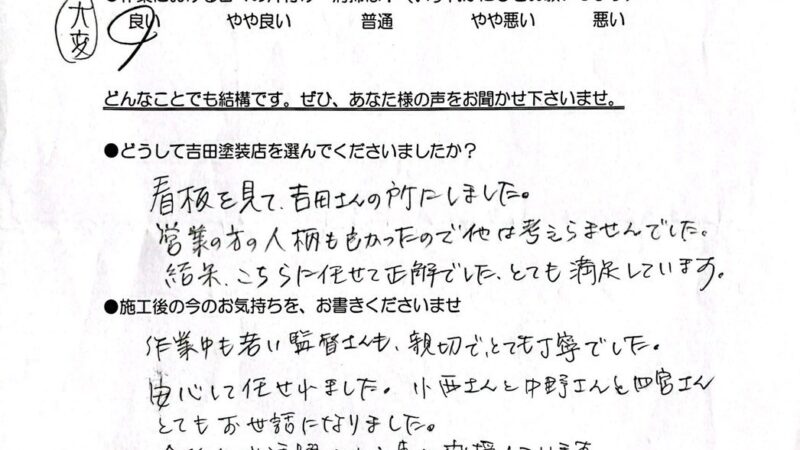 大変
良い　やや良い　普通　やや悪い　悪い
どんなことでも結構です。ぜひ、あなた様の声をお聞かせ下さいませ。
●どうして吉田塗装店を選んでくださいましたか？
看板を見て、吉田さんの所にしました。
営業の方の人柄も良かったので他は考えらませんでした。
結果、こちらに任せて正解でした、とても満足しています。
●施工後の今のお気持ちを、お書きくださいませ
作業中も若い監督さんも、親切で、とても丁寧でした。
安心して任せれました。小西さんと中野さんと四宮さん
とてもお世話になりました。